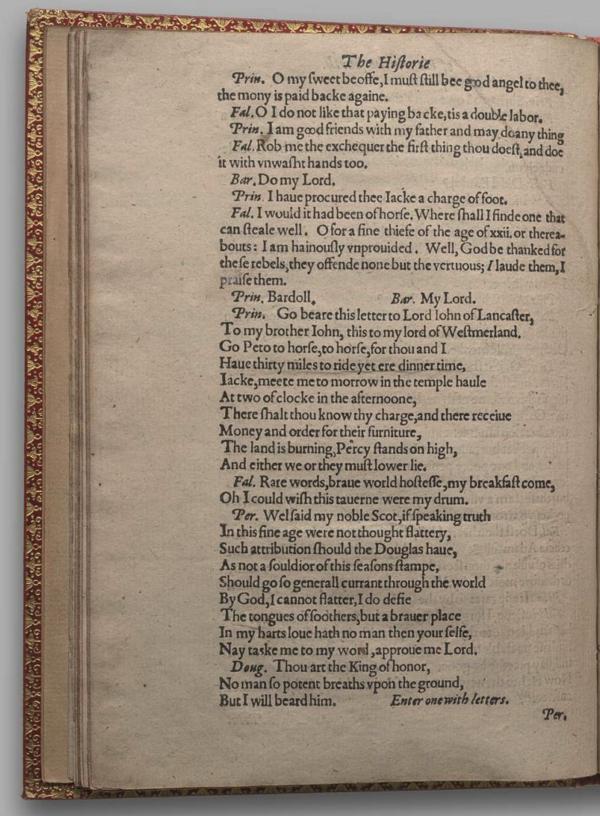 The Hiſtorie
Prin. O my ſweet beoffe, I muſt ſtill bee good angel to thee,
the mony is paid backe againe.
Fal. O I do not like that paying backe, tis a double labor.
Prin. I am good friends with my father and may do any thing
Fal. Rob me the exchequer the firſt thing thou doeſt, and doe
it with vnwaſht hands too.
Bar. Do my Lord.
Prin. I haue procured thee Iacke a charge of foot.
Fal. I would it had been of horſe. Where ſhall I finde one that
can ſteale well. O for a fine thiefe of the age of xxii. or therea-
bouts: I am hainouſly vnprouided. Well, God be thanked for
theſe rebels, they offende none but the vertuous; I laude them, I
praiſe them.
Prin. Bardoll. Bar. My Lord.
Prin. Go beare this letter to Lord Iohn of Lancaſter,
To my brother Iohn, this to my lord of Weſtmerland.
Go Peto to horſe, to horſe, for thou and I
Haue thirty miles to ride yet ere dinner time,
Iacke, meete me to morrow in the temple haule
At two of clocke in the afternoone,
There ſhalt thou know thy charge, and there receiue
Money and order for their furniture,
The land is burning, Percy ſtands on high,
And either we or they muſt lower lie.
Fal. Rare words, braue world hoſteſſe, my breakfaſt come,
Oh I could wiſh this tauerne were my drum.
Per. Wel ſaid my noble Scot, if ſpeaking truth
In this fine age were not thought flattery,
Such attribution ſhould the Douglas haue,
As not a ſouldior of this ſeaſons ſtampe,
Should go ſo generall currant through the world
By God, I cannot flatter, I do defie
The tongues of ſoothers, but a brauer place
In my harts loue hath no man then your ſelfe,
Nay taske me to my word, approue me Lord.
Doug. Thou art the King of honor,
No man ſo potent breaths vpon the ground,
But I will beard him. Enter one with letters.
Per.